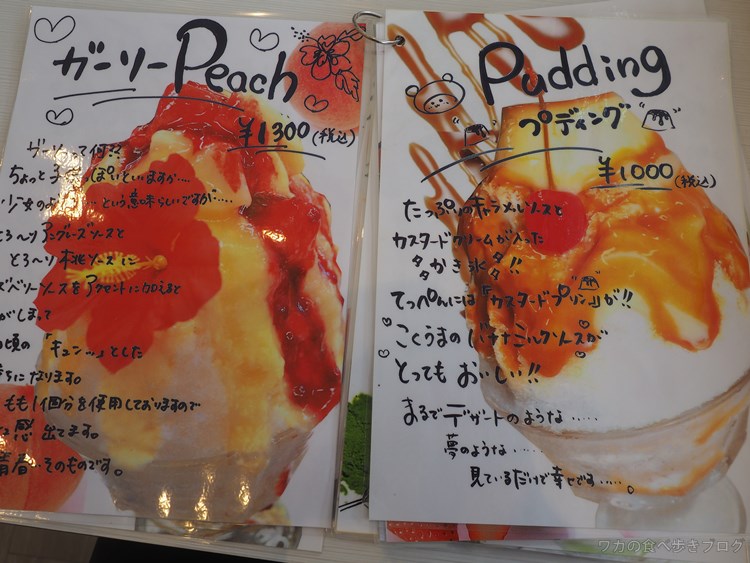 ガーリーPeach
¥1300(税込)
ガーリーって何??
ちょっと子どもっぽいといいますか‥‥
少女のような‥‥という意味らしいですが‥‥
とろ〜りアングレーズソースと
とろ〜り桃ソースに
ズベリーソースをアクセントに加えると
がしまして
頃の「キュン〜」とした
ちになります。
もも1個分を使用しておりますので
感出てます。
青春‥そのものです。
Pudding
プディング
¥1000(税込)
たっぷりのキャラメルソースと
カスタードクリームが入った
かき氷!!
てっぺんには「カスタードプリン」が!!
こくうまのバナナミルクソースが
とってもおいしい!!
まるでデザートのような‥‥‥
夢のような‥‥‥
見ているだけで幸せです‥‥‥。
ワカの食べ歩きブログ